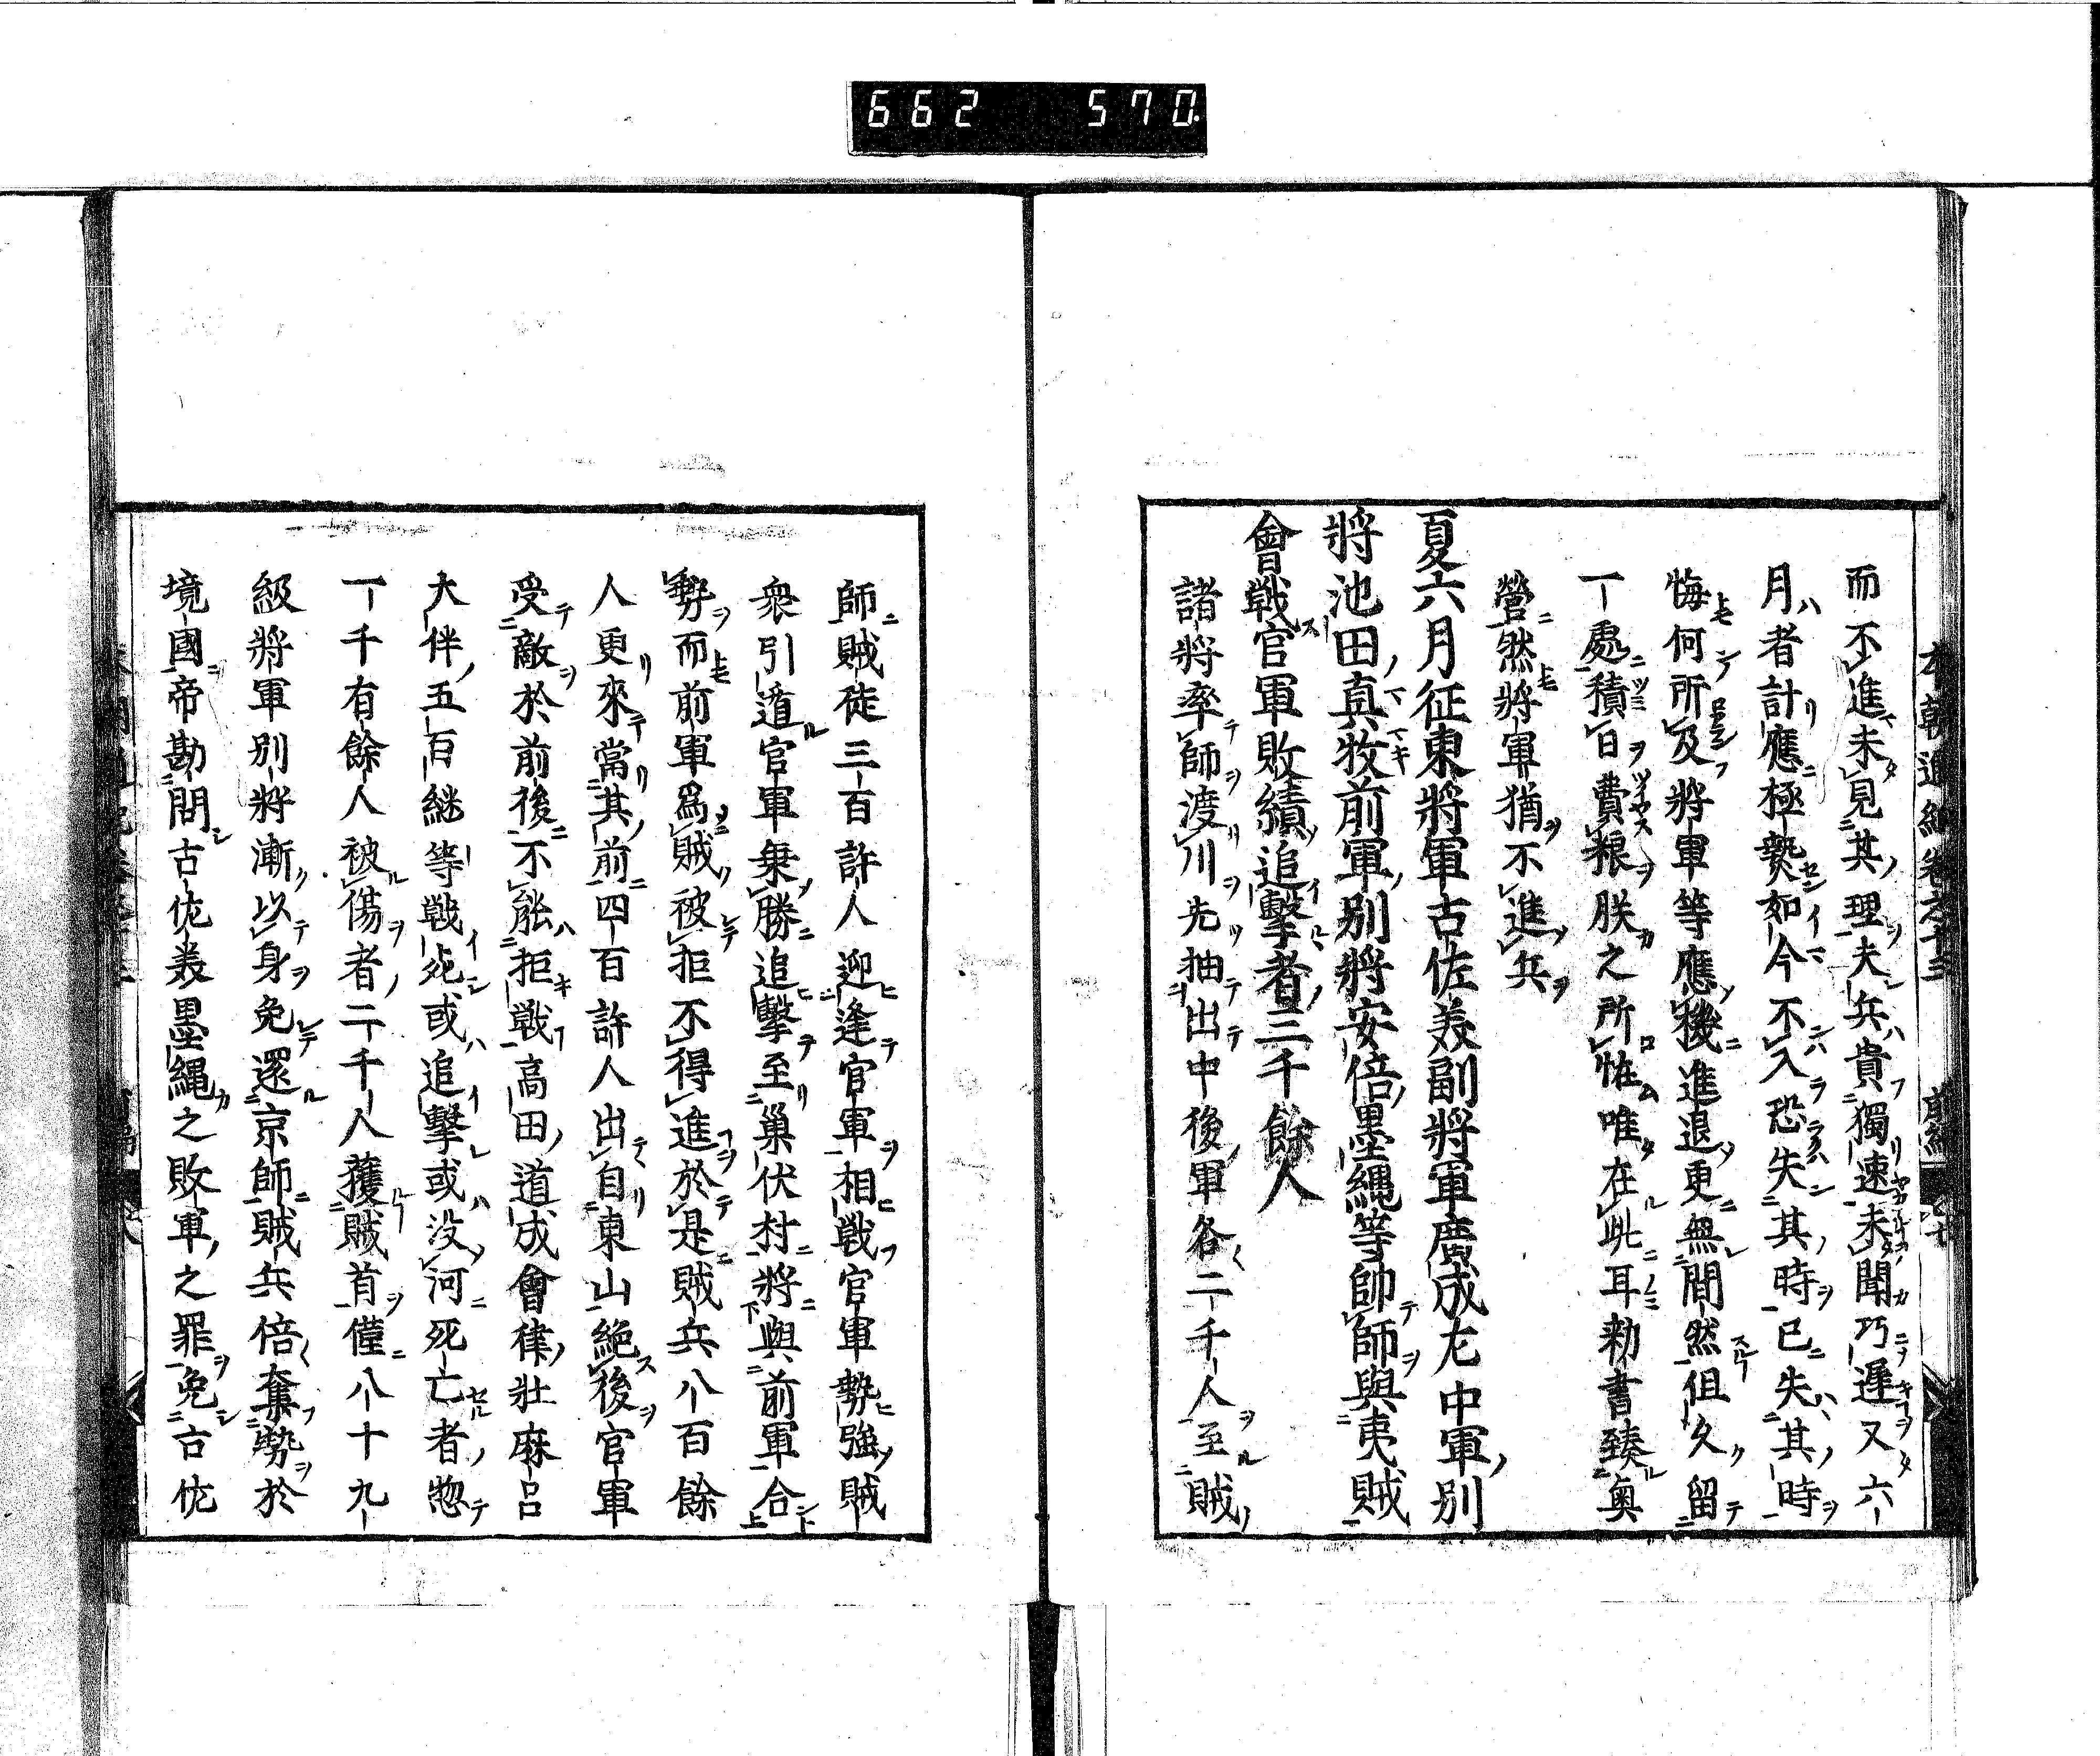 662 570
而不進未見其理夫兵貴獨速未聞巧遲又六
月者計應極熱如今不入恐失其時已失其時
悔何所及將軍等應機進退更無間然但久留
一處積日費粮朕之所恠唯在此耳勅書臻奧
營然將軍猶不進兵
夏六月征東將軍古佐美副將軍廣成左中軍別
將池田真牧前軍別將安倍墨縄等帥師與夷賊
會戦官軍敗績追擊者三千餘人
諸將率師渡川先抽出中後軍各二千人至賊
師賊徒三百許人迎逢官軍相戦官軍勢強賊
衆引遁官軍乗勝追擊至巢伏村將與前軍合
勢而前軍為賊被拒不得進於是賊兵八百餘
人更來當其前四百許人出自東山絶後官軍
受敵於前後不能拒戦高田道成會律壯麻呂
大伴五百継等戦死或追擊或没河死亡者惣
一千有餘人被傷者二千人獲賊首僅八十九
級將軍別將漸以身免還京師賊兵倍奮勢於
境國帝勘問古佐美墨縄之敗軍之罪免古佐